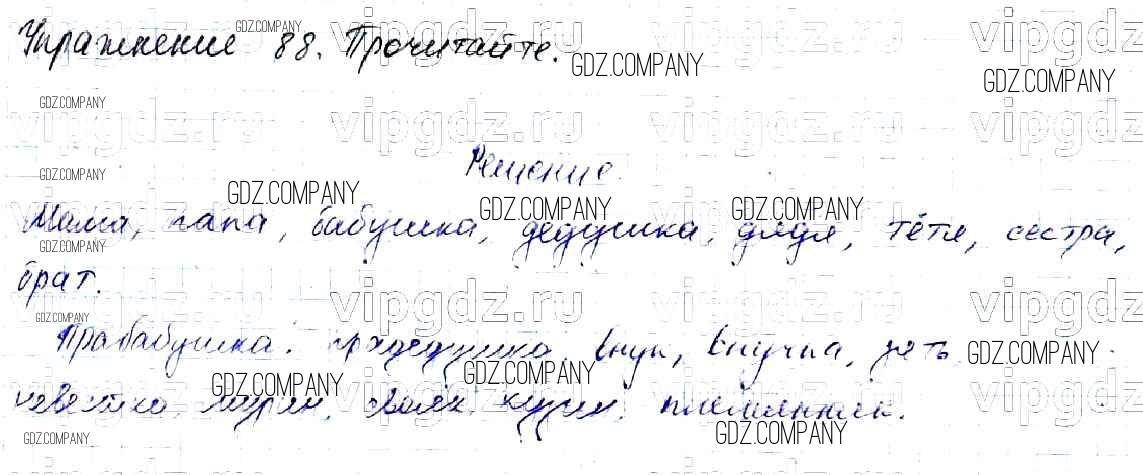 Упражнение 88. Прочитайте.
Решение.
Мама, папа, бабушка, дедушка, дядя, тётя, сестра,
брат.
Прабабушка, прадедушка, внук, внучка, зять,
невестка, шурин, свояк, кузен, племянник.
GDZ.COMPANY
vipgdz.ru